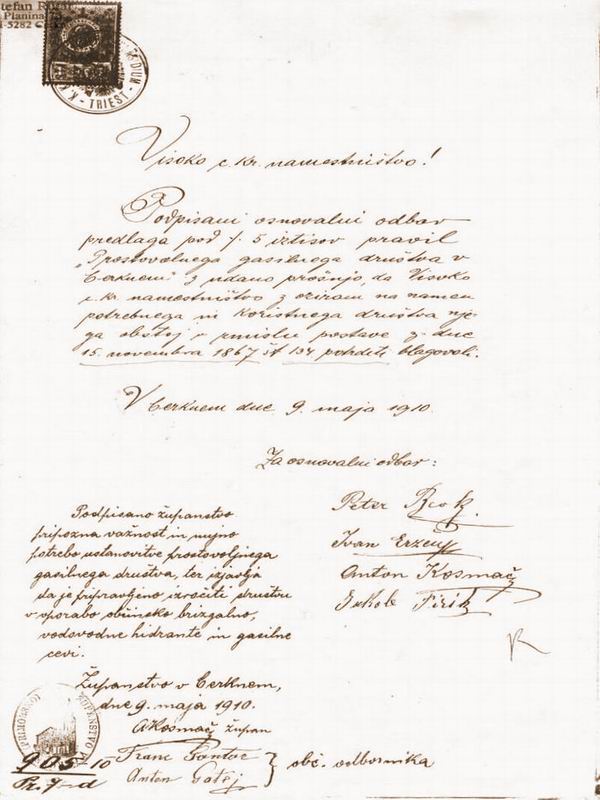 Planina
TRIEST
Visoko c. kr. namestništvo!
Podpisani osnovalni odbor
predlaga pod ·/. 5 iztisov pravil
„Prostovolnega gasilnega društva v
Cerknem" z udano prošnjo, da Visoko
c. kr. namestništvo z ozirom na namen
potrebnega in koristnega društva nje-
ga obstoj v smislu postave z dne
15. novembra 1867 št 134 potrditi blagovoli.
V Cerknem dne 9. maja 1910.
Za osnovalni odbor:
Peter
Ivan Erzen
Anton Kosmač
Jakob
Podpisano županstvo
pripozna važnost in nujno
potrebo ustanovitve prostovoljnega
gasilnega društva, ter izjavlja
da je pripravljeno, izročiti društvu
v vporabo občinsko brizgalno,
vodovodne hidrante in gasilne
cevi.
Županstvo v Cerknem,
dne 9. maja 1910.
AKosmač župan
Franc
Anton
obč. odbornika
905
10